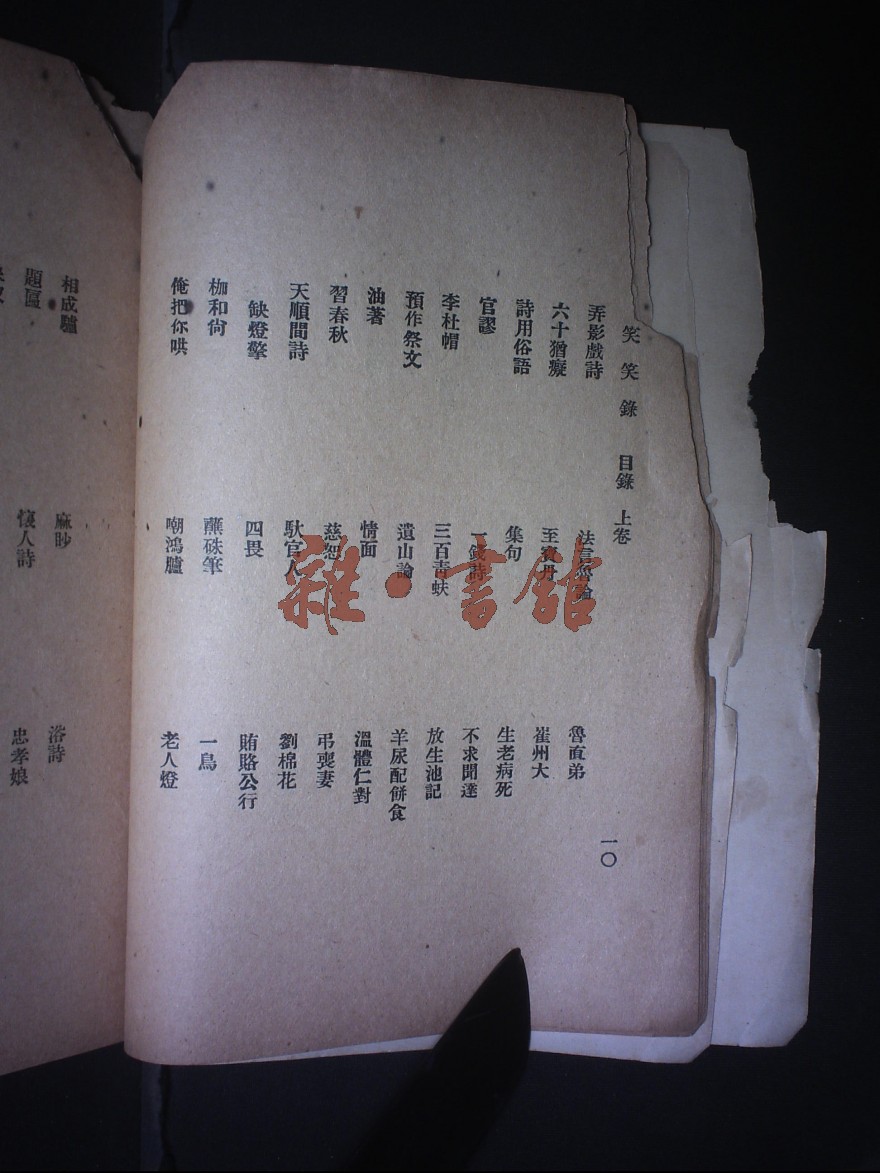 笑笑錄 目錄 上卷 一〇
弄影戲詩 法言 論 魯直弟
六十猶癡 至寶丹 崔州大
詩用俗語 集句 生老病死
官謬 一錢詩 不求聞達
李杜帽 三百青蚨 放生池記
預作祭文 遺山論 羊尿配餅食
油著 情面 溫體仁對
習春秋 慈恕 弔喪妻
天順間詩 馱官人 劉棉花
缺燈擎 四畏 賄賂公行
枷和尙 蘸硃筆 一鳥
俺把你哄 嘲鴻臚 老人燈
相成驢 麻眇 洛詩
題匾 懷人詩 忠孝娘
雜·書館